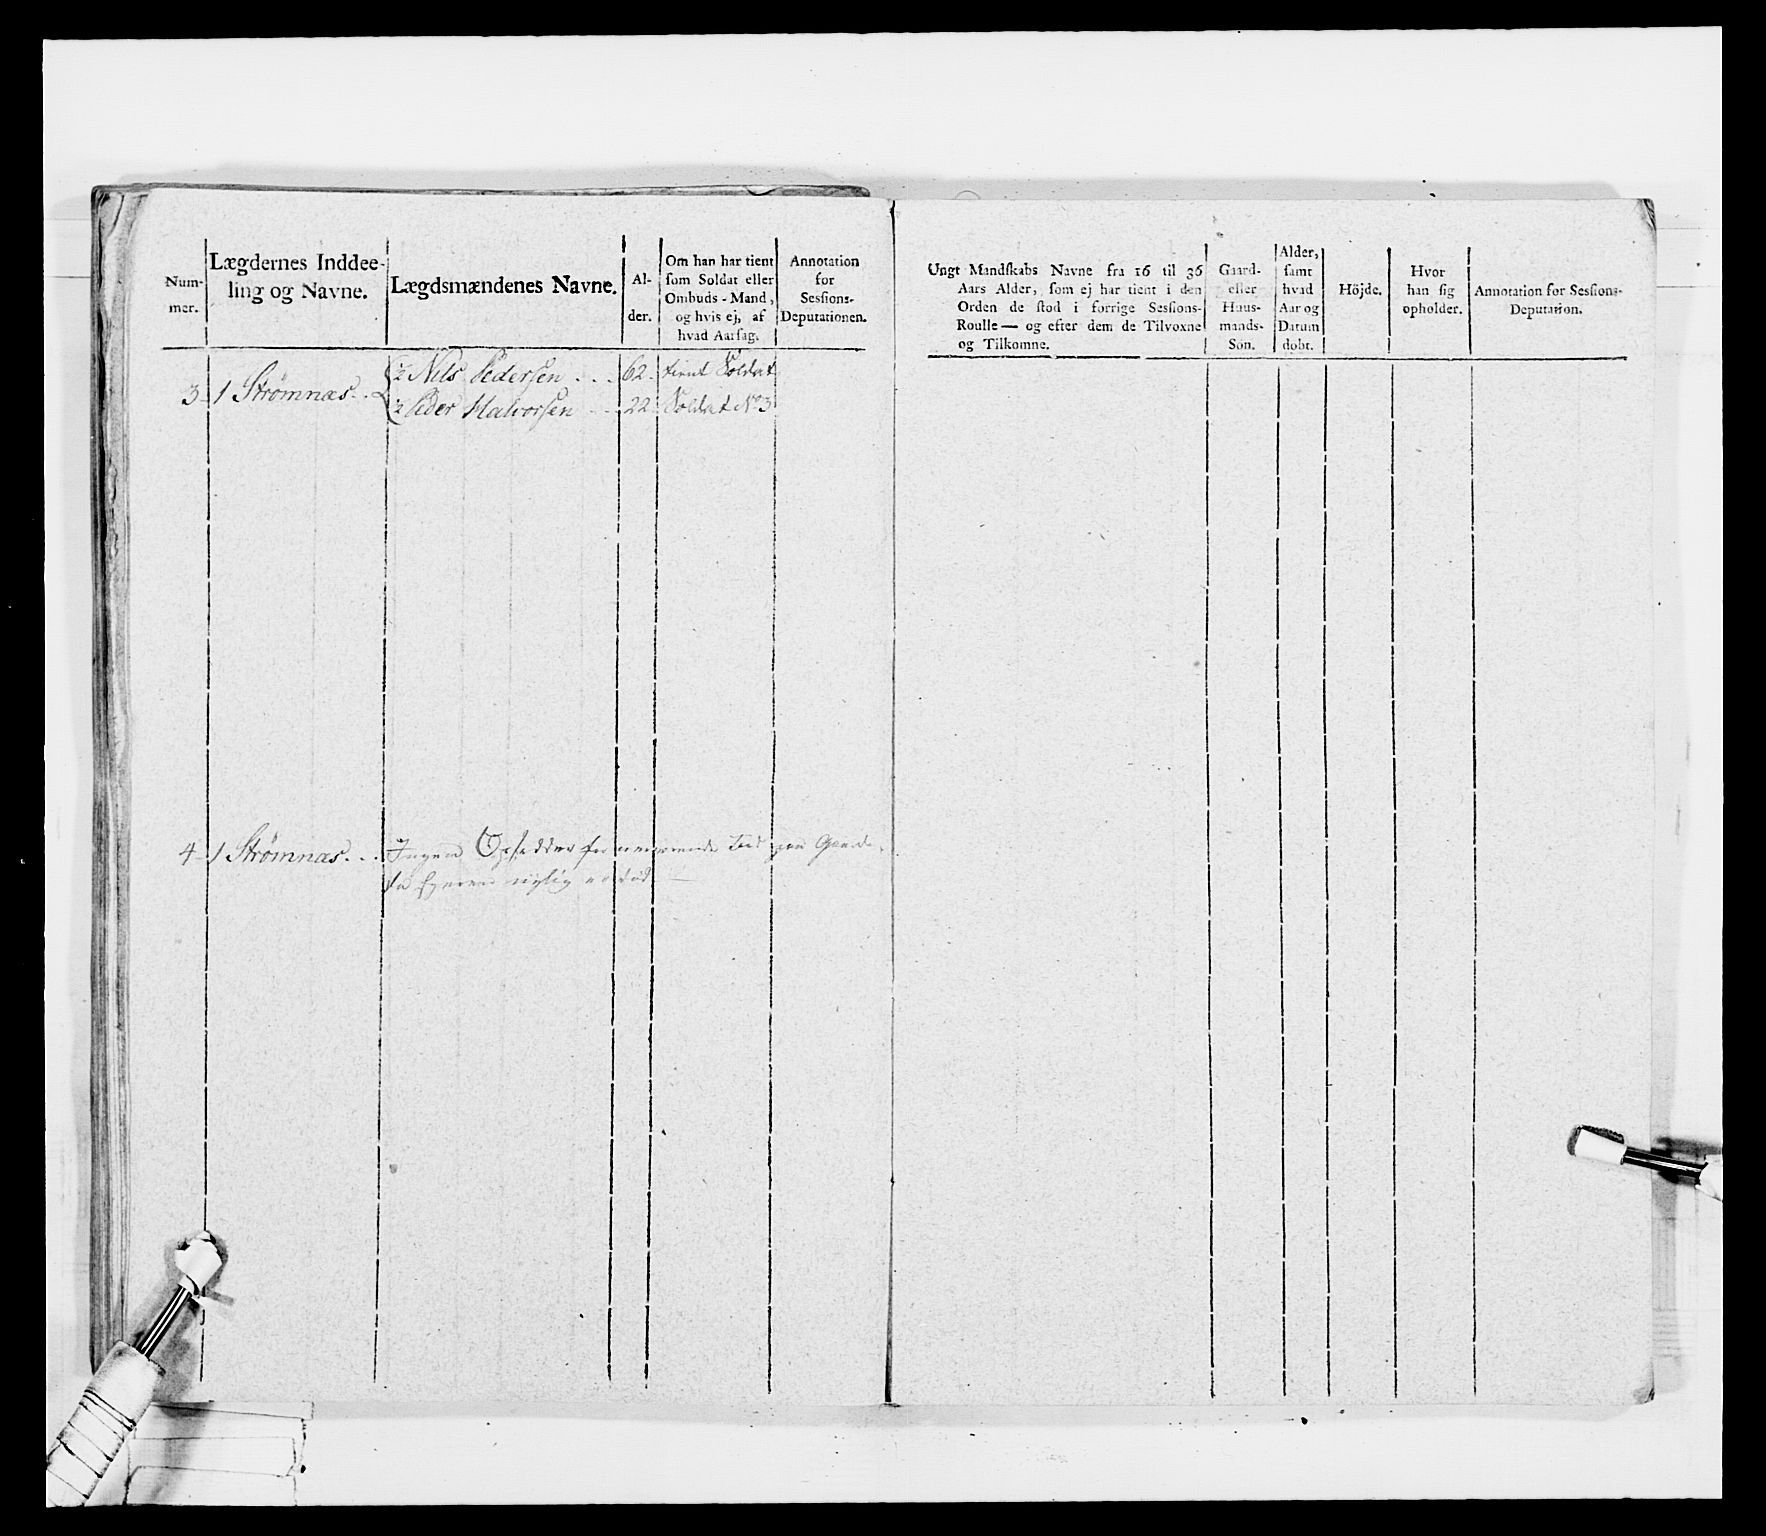 Num-
mer.
Lægdernes Inddee-
ling og Navne.
Lægdsmændenes Navne.
Al-
der.
Om han har tient
ſom Soldat eller
Ombuds-Mand,
og hvis ej, af
hvad Aarſag.
Annotation
for
Sesſions-
Deputationen.
3 1 Strømnæs ½ Nils Pedersen . . . 62. tient Soldat
½ Peder Halvorsen . . . 22. Soldat No 3
4 1 Strømnæs. . . Ingen Opsidder for nærværende Tid paa Gaarden,
da Ejeren nylig er død
Ungt Mandſkabs Navne fra 16 til 36
Aars Alder, ſom ej har tient i den
Orden de ſtod i forrige Sesſions-
Roulle — og efter dem de Tilvoxne
og Tilkomne.
Gaard-
eller
Huus-
mands-
Sön.
Alder,
ſamt
hvad
Aar og
Datum
döbt.
Höjde.
Hvor
han ſig
opholder.
Annotation for Sesſions-
Deputation.